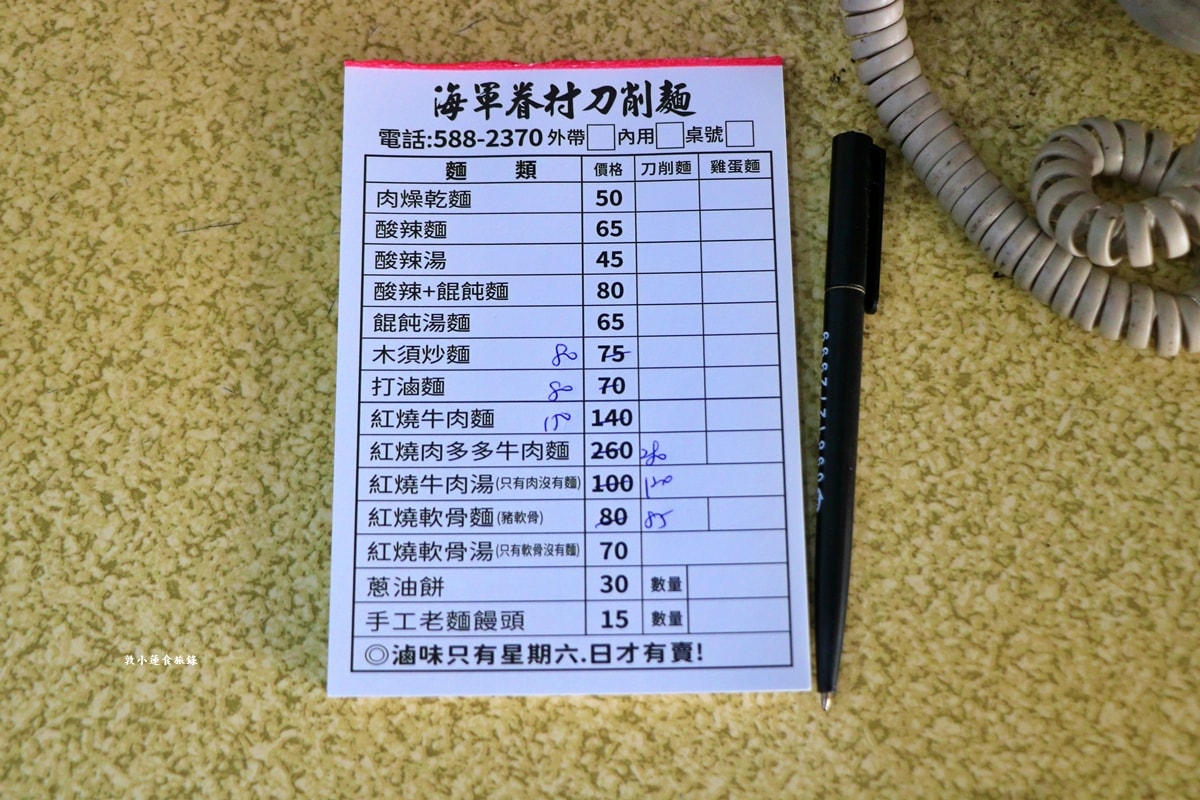 海軍眷村刀削麵
電話:588-2370 外帶 內用 桌號
麵 類 價格 刀削麵 雞蛋麵
肉燥乾麵 50
酸辣麵 65
酸辣湯 45
酸辣+餛飩麵 80
餛飩湯麵 65
木須炒麵 80 75
打滷麵 80 70
紅燒牛肉麵 150 140
紅燒肉多多牛肉麵 260 280
紅燒牛肉湯(只有肉沒有麵) 100 120
紅燒軟骨麵(豬軟骨) 80 85
紅燒軟骨湯(只有軟骨沒有麵) 70
蔥油餅 30 數量
手工老麵饅頭 15 數量
◎滷味只有星期六.日才有賣!
敦小蓮食旅錄